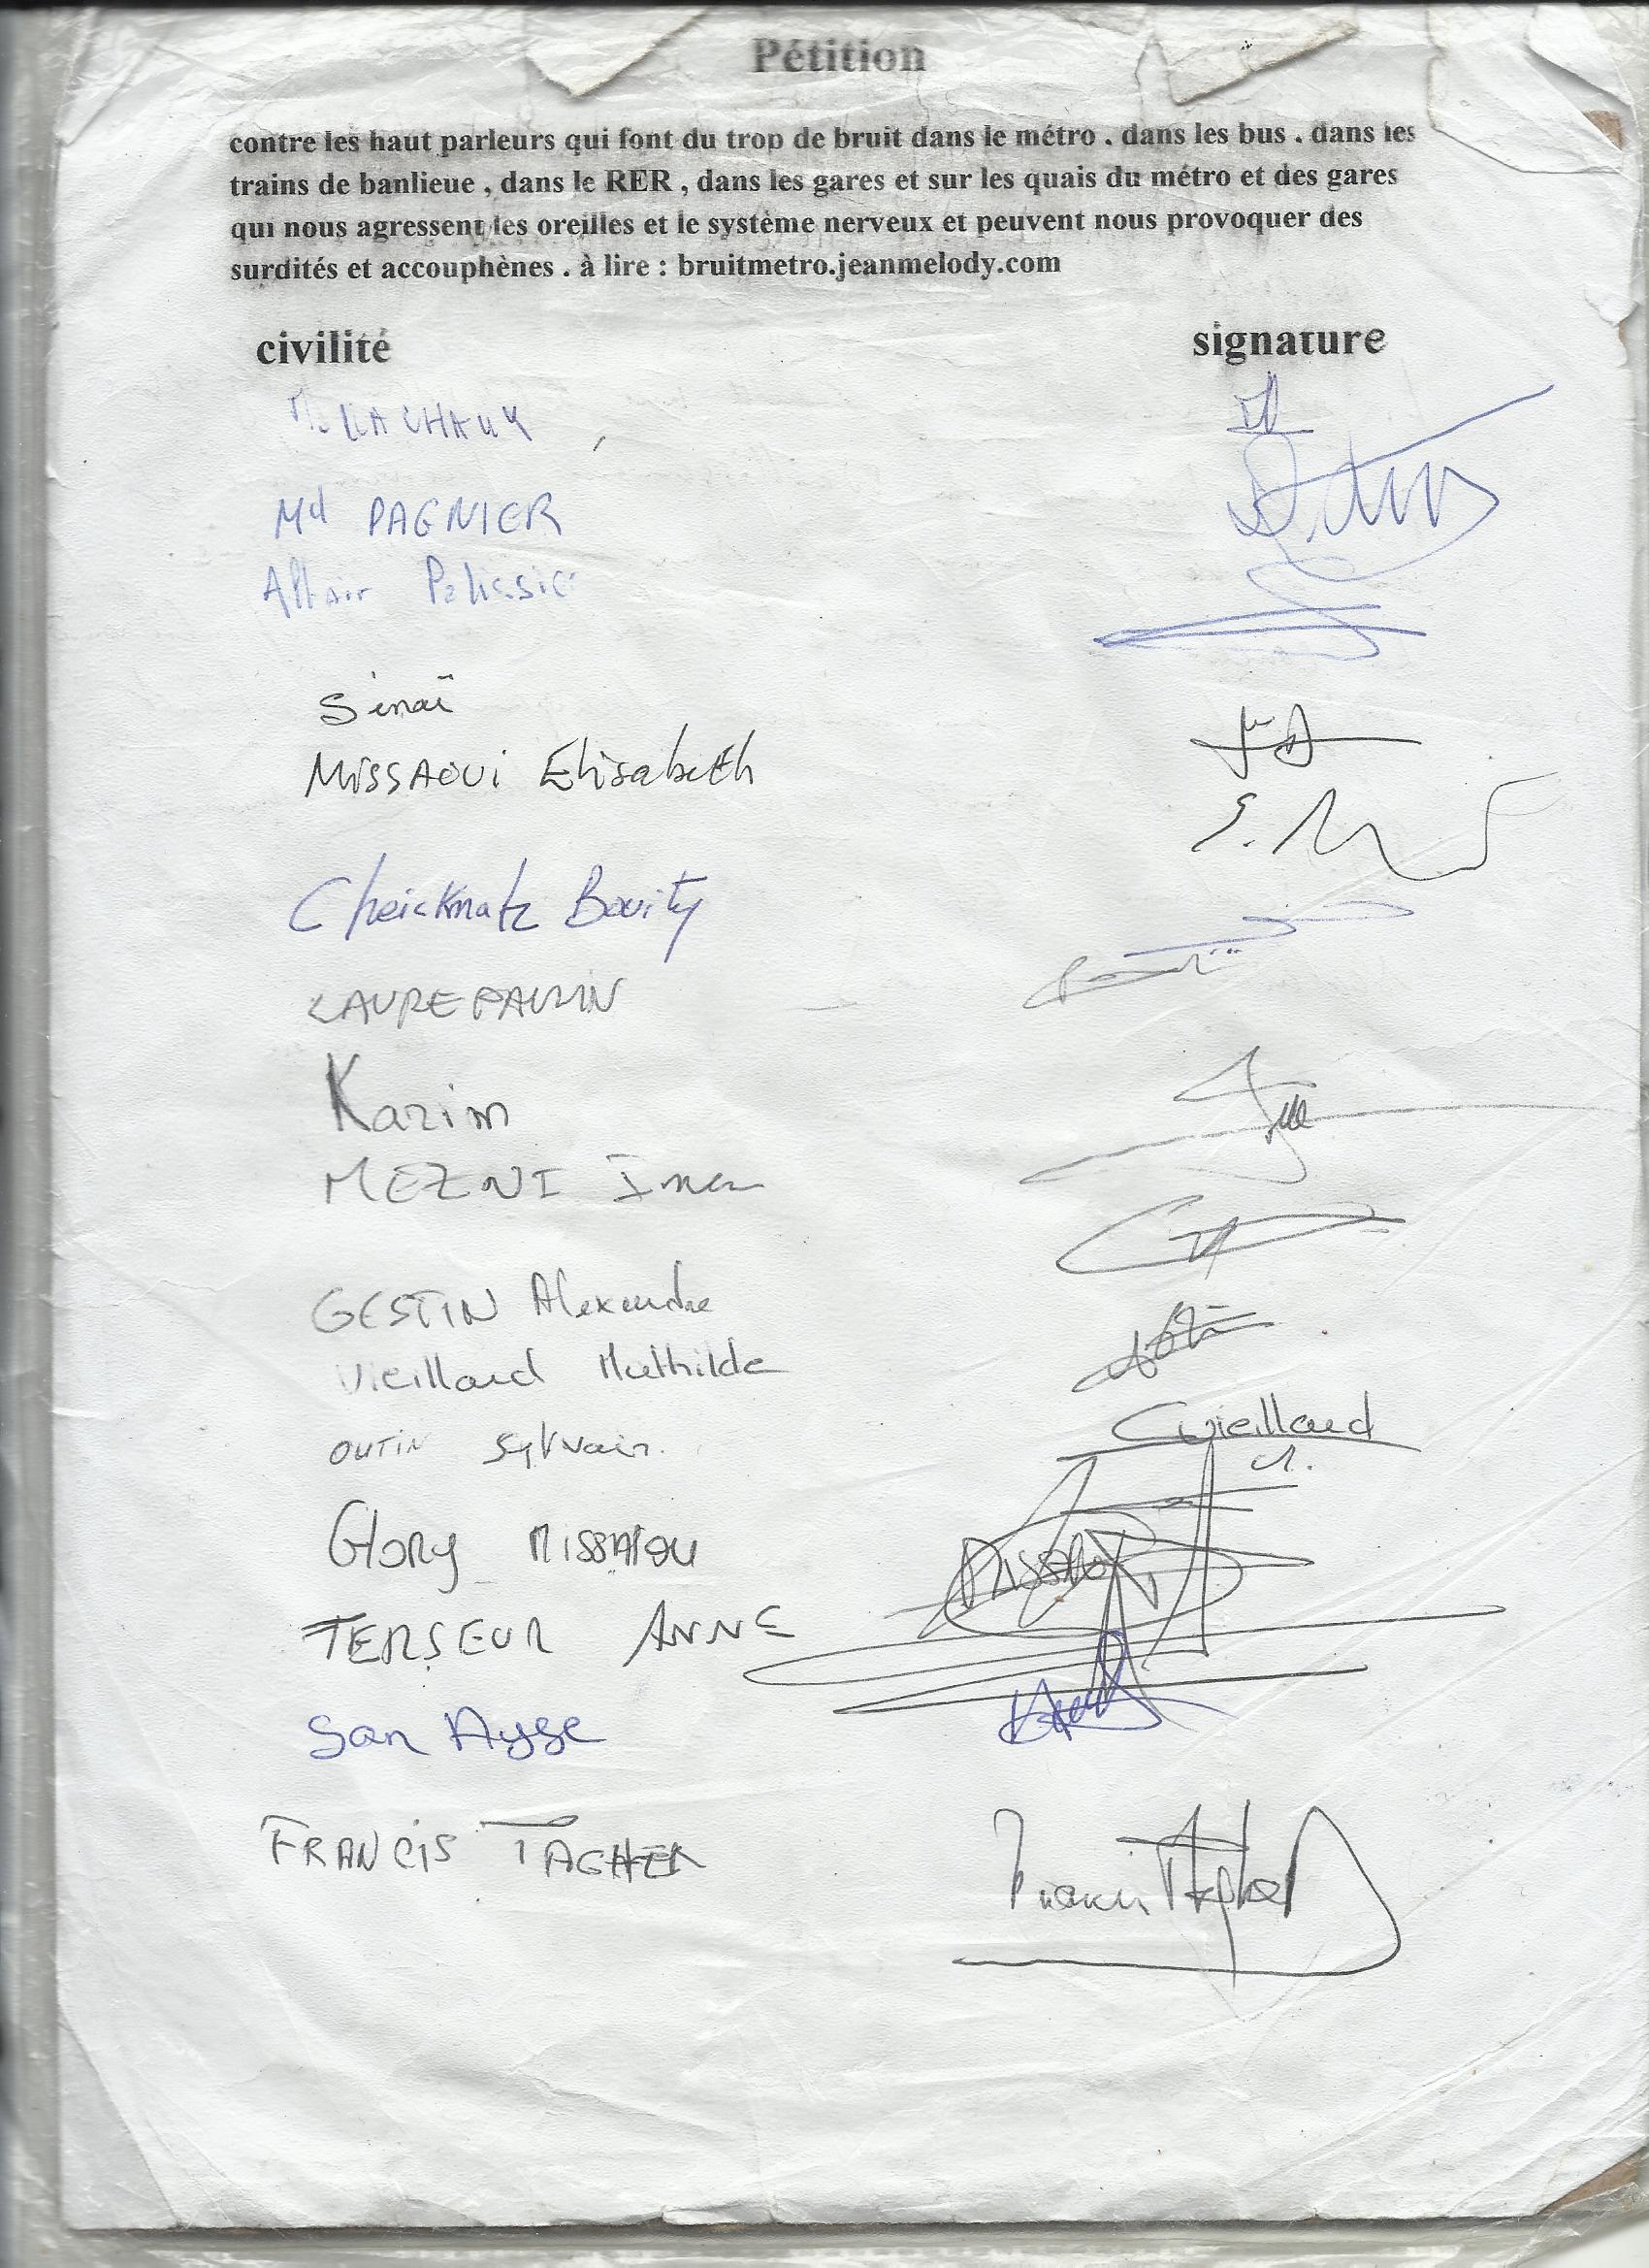 Pétition
contre les haut parleurs qui font du trop de bruit dans le métro . dans les bus . dans les
trains de banlieue , dans le RER , dans les gares et sur les quais du métro et des gares
qui nous agressent les oreilles et le système nerveux et peuvent nous provoquer des
surdités et accouphènes . à lire : bruitmetro.jeanmelody.com
civilité signature
Md PAGNIER
Sinaï
MISSAOUI Elisabeth
Cheickmatz Bouity
LAURE PAULIN
Karim
MEZNI Imen
GESTIN Alexandre
Vieillard Mathilde
OUTIN Sylvain.
Vieillard
M.
Glory MISSATOU
TERSEUR ANNE
San Ayse
FRANCIS TAGHER